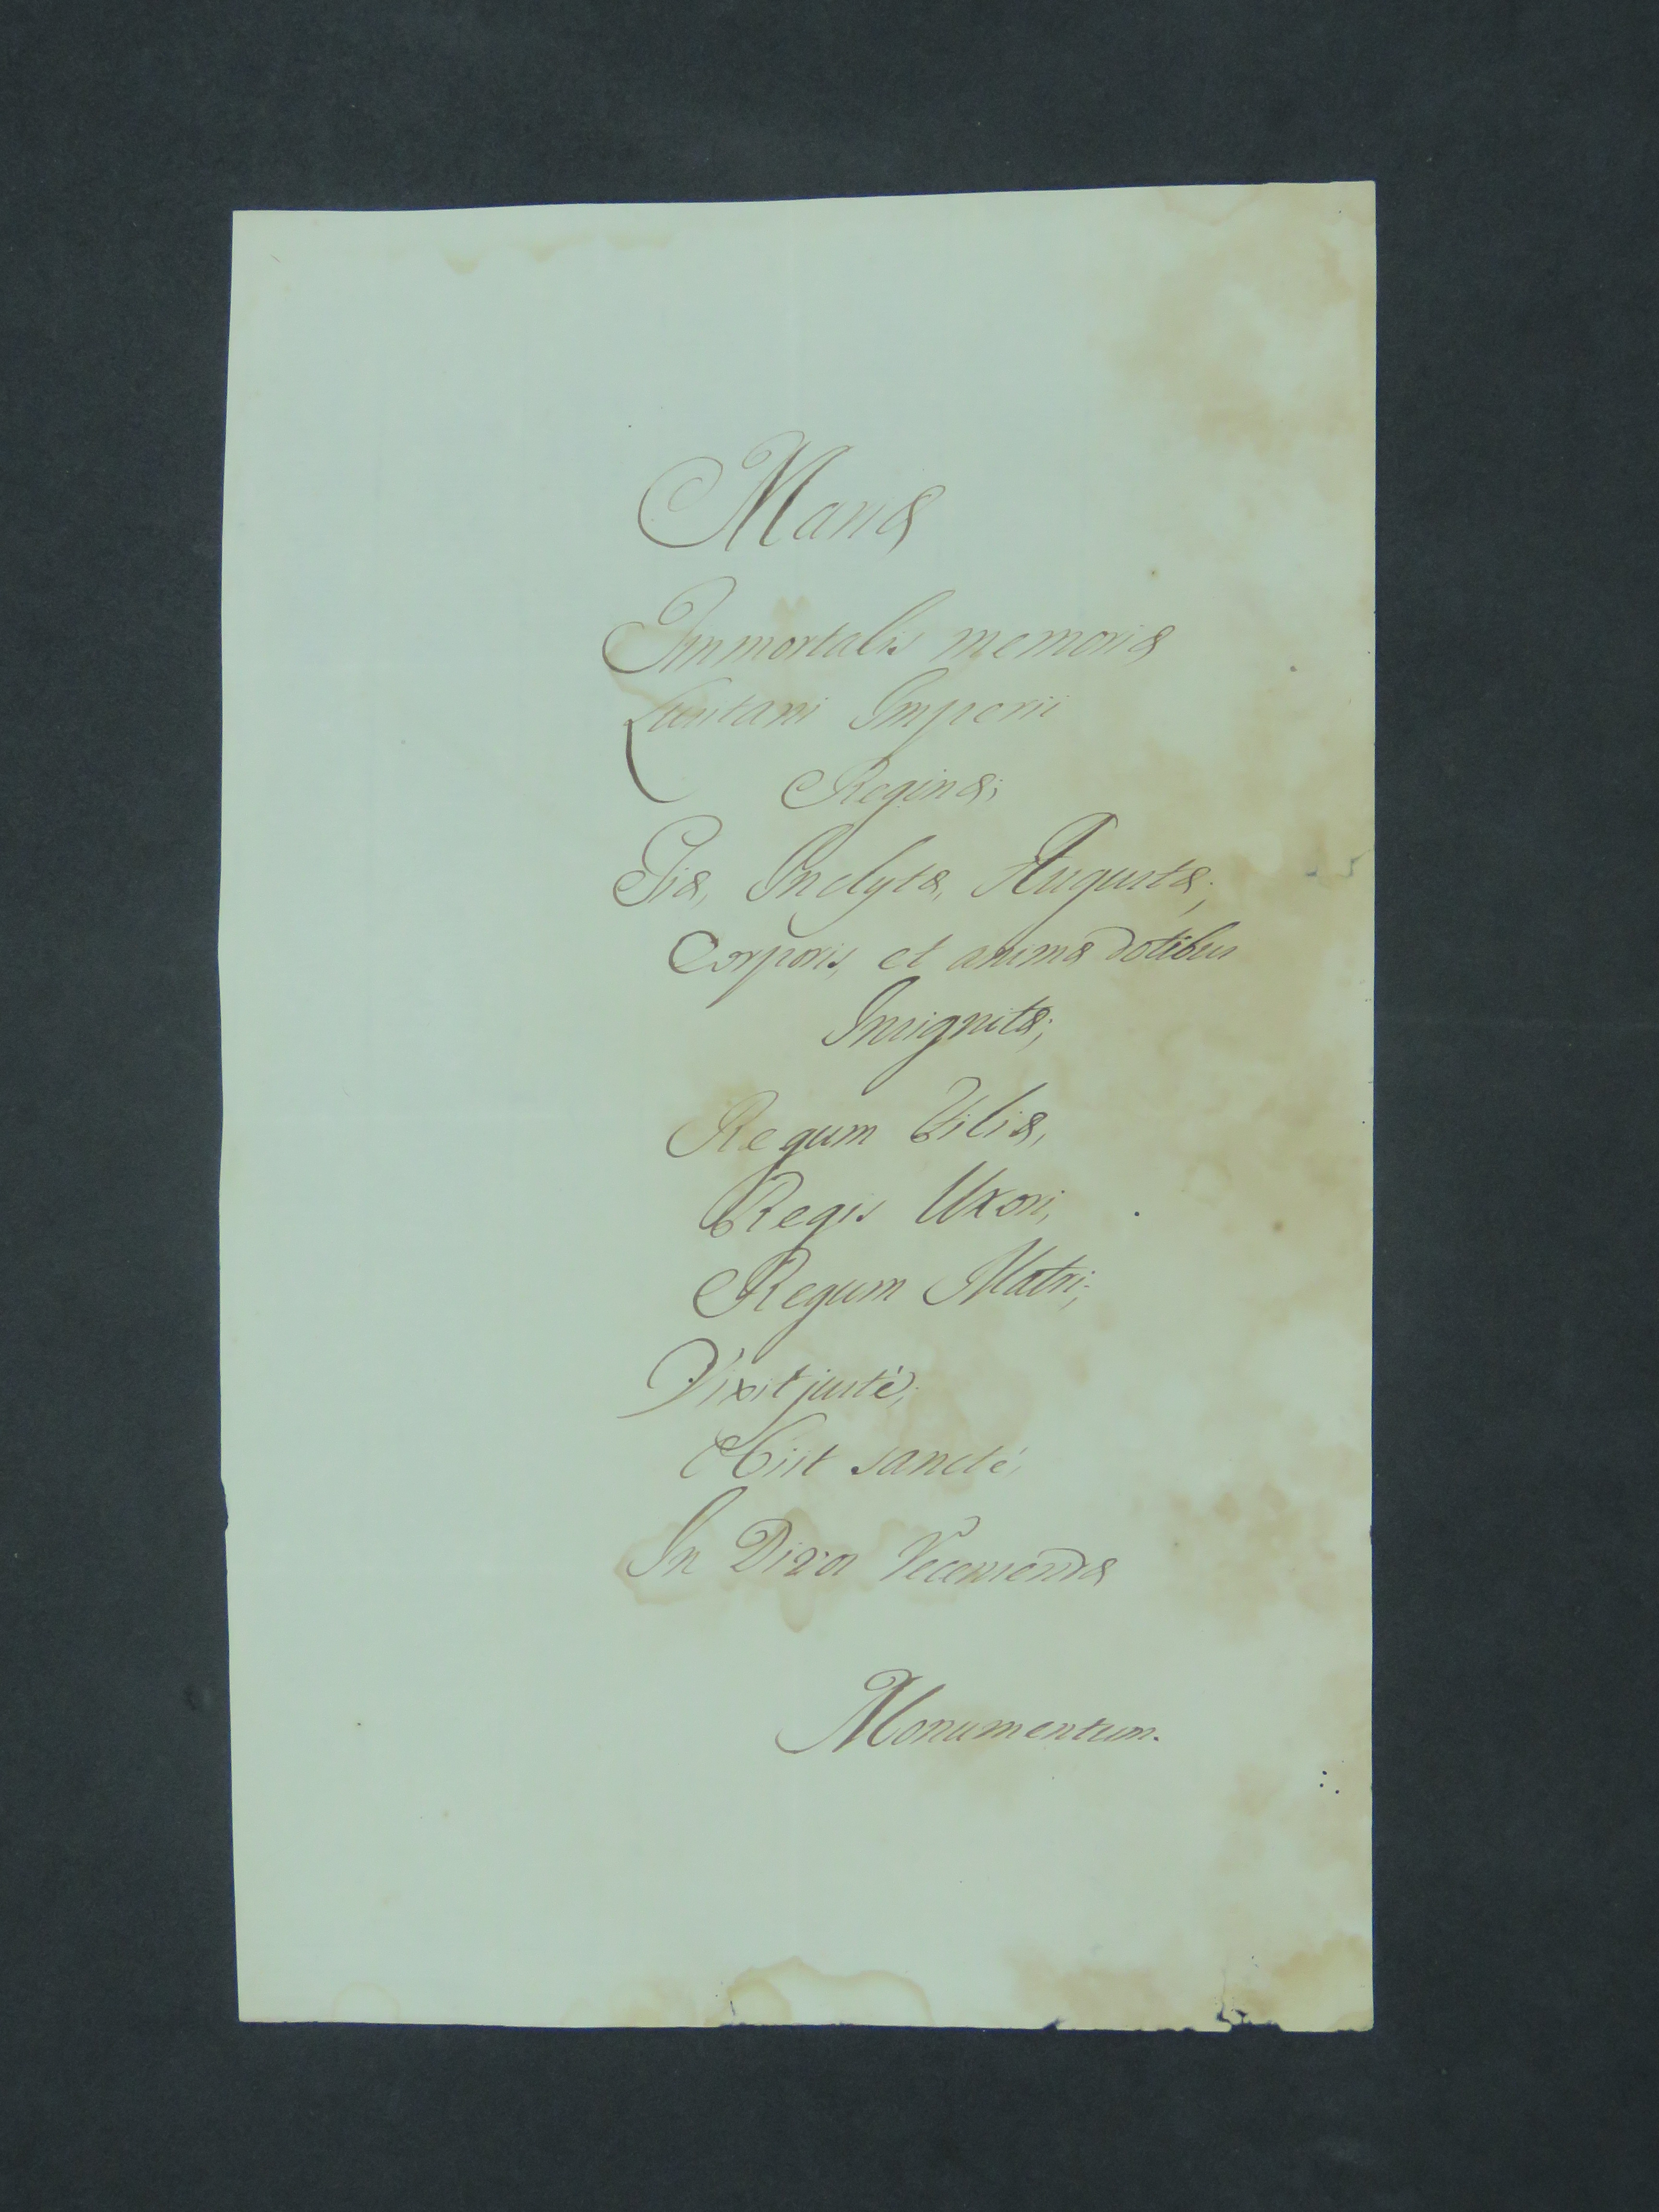 Mariæ
Immortalis memoriæ
Lusitani Imperii
Reginæ;
Piæ, Inclytæ, Augustæ;
Corporis, et animæ dotibus
Insignitæ;
Regum Filiæ,
Regis Uxori,
Regum Matri;
Vixit justé,
Obiit sancté,
In Divos Recensendæ
Monumentum.